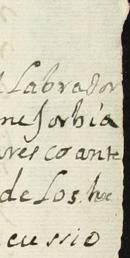 Labrador
me sorbia
ores co ante
de Los. hoc
cussio